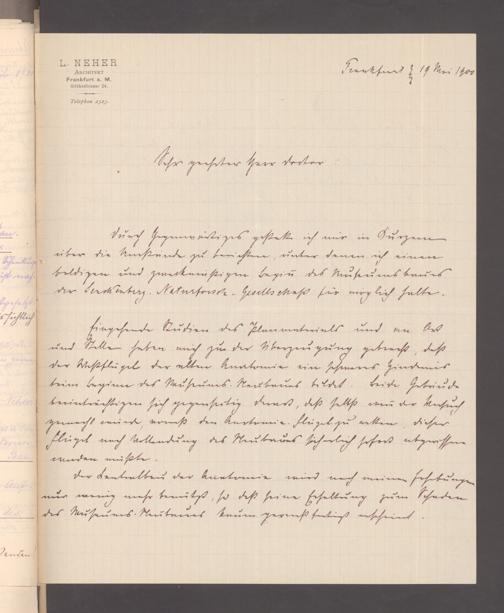 L. NEHER
ARCHITEKT
Frankfurt a. M.
Telephon 2525.
Frankfurt 19 Mai 1900
Sehr geehrter Herr Doctor
Durch Gegenwärtiges gestatte ich mir in Kurzem
über die Umstände zu berichten, unter denen ich einen
baldigen und zweckmäßigen Beginn des Museumsbaues
der Senckenberg. Naturforsch. Gesellschaft für möglich halte.
Eingehende Studien des Planmaterials und an Ort
und Stelle haben mich zu der Überzeugung gebracht, daß
der Westflügel der alten Anatomie ein schweres Hindernis
beim Beginne des Museums Neubaues bildet. Beide Gebäude
beeinträchtigen sich gegenseitig derart, daß selbst wenn der Versuch
gemacht würde, den Anatomie-Flügel zu retten, dieser
Flügel nach Vollendung des Neubaues sicherlich sofort abgerissen
werden müßte.
Der Centralbau der Anatomie wird nach meinen Erhebungen
nur wenig mehr benutzt, so daß seine Erhaltung zum Schaden
des Museums-Neubaues kaum gerechtfertigt erscheint.